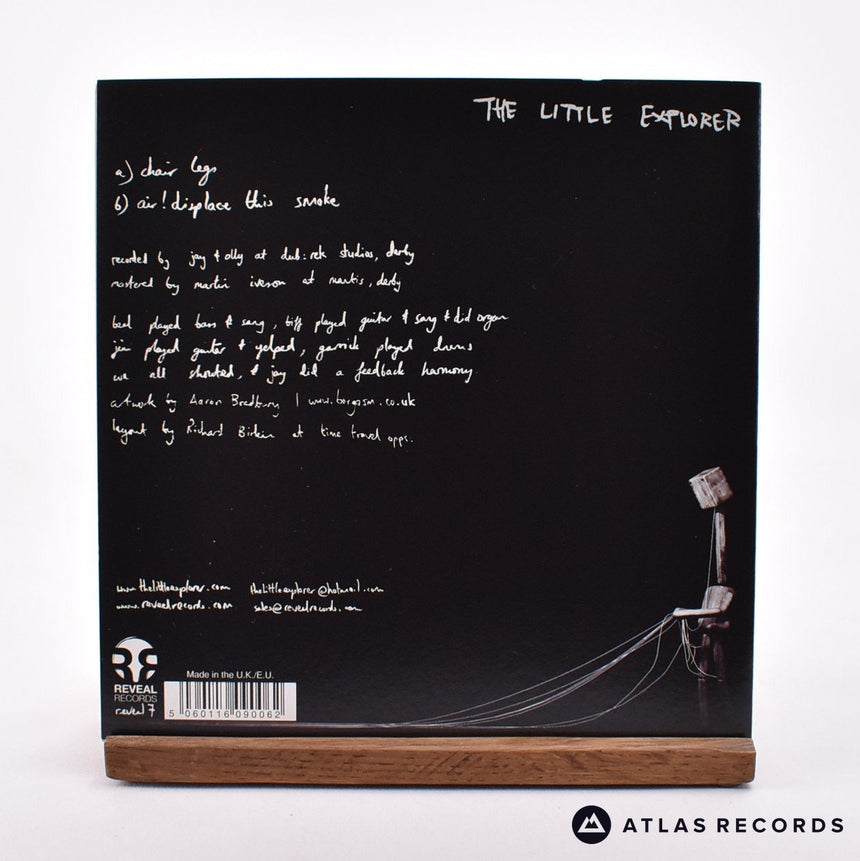 THE LITTLE EXPLORER
a) chair legs
b) air! displace this smoke
recorded by jay & olly at dub:rek studios, derby
mastered by martin iverson at mantis, derby
beal played bass & sang, tiff played guitar & sang & did organ
jim played guitar & yelped, garrick played drums
we all shouted, & jay did a feedback harmony
artwork by Aaron Bradbury | www.borgasm.co.uk
layout by Richard Birkin at time travel opps.
www.thelittleexplorer.com thelittleexplorer@hotmail.com
www.revealrecords.com sales@revealrecords.com
REVEAL
RECORDS
reveal 7
Made in the U.K./E.U.
5 060116 090062
ATLAS RECORDS